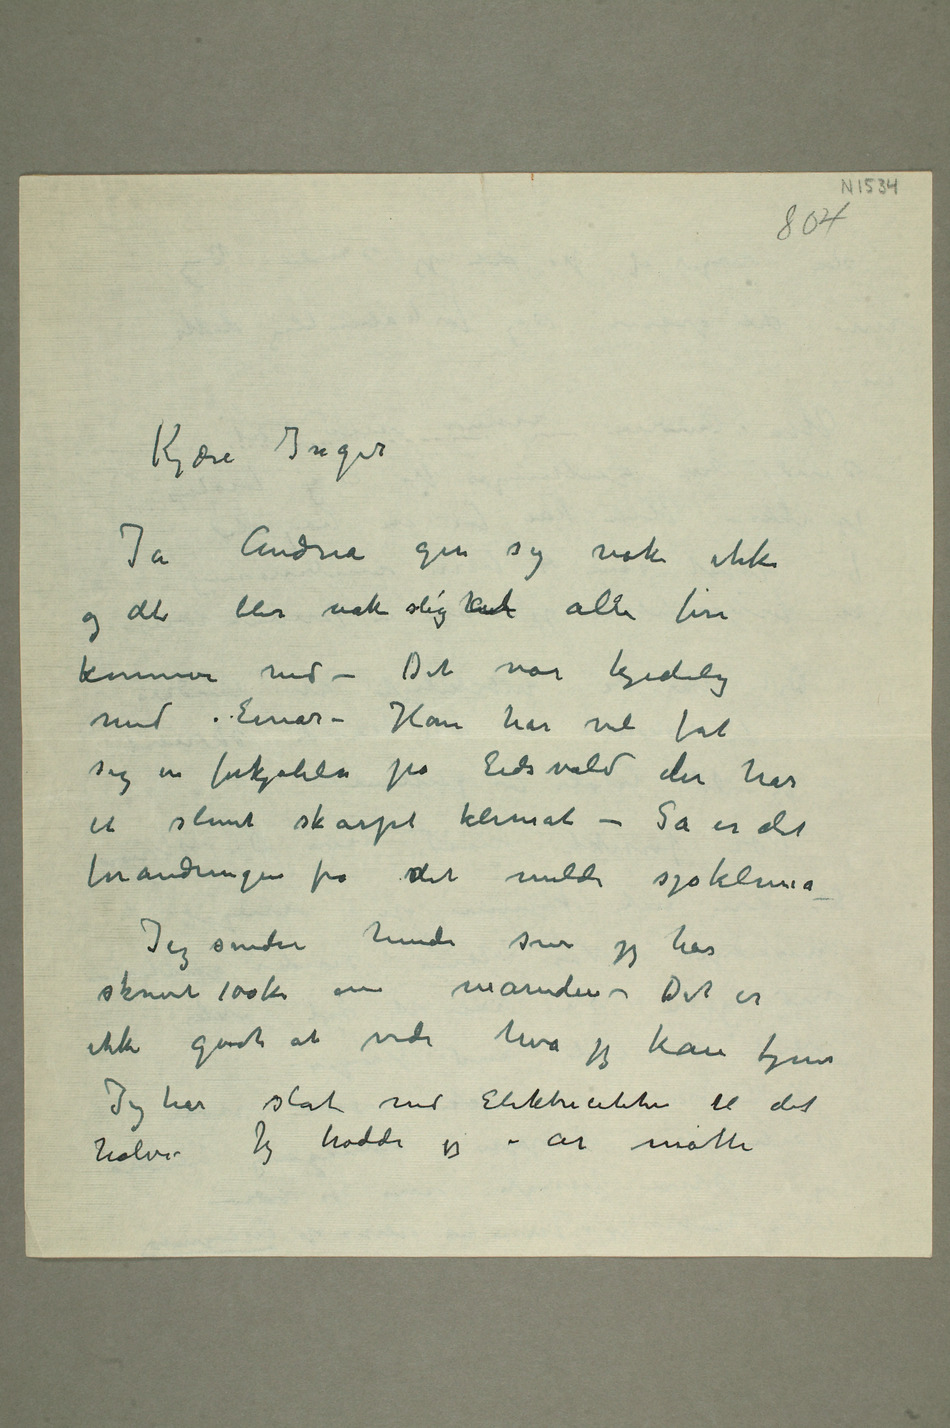 N1534
804
Kjære Inger
Ja Andrea gir sig nok ikke
og det blir nok slig at alle fire
kommer ned – Det var kjedelig
med Einar – Han har vel fåt
sig en forkjølelse på Eidsvold der har
et slemt skarpt klimat – Så er det
forandringen fra det milde sjøklima –
Jeg sender hende som jeg har
skrevet 100 kr om måneden – Det er
ikke godt at vide hva jeg kan tjene
Jeg har slåt ned Elektriciteten til det
halve Jeg trodde jeg i år måtte